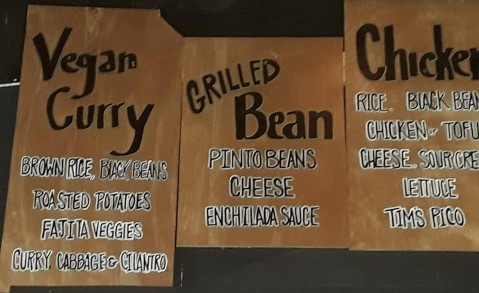 Vegan
Curry
BROWN RICE, BLACK BEANS
ROASTED POTATOES
FAJITA VEGGIES
CURRY, CABBAGE & CILANTRO
GRILLED
Bean
PINTO BEANS
CHEESE
ENCHILADA SAUCE
Chicken
RICE, BLACK BEAN
CHICKEN or TOFU
CHEESE, SOUR CRE
LETTUCE
TIM'S PICO